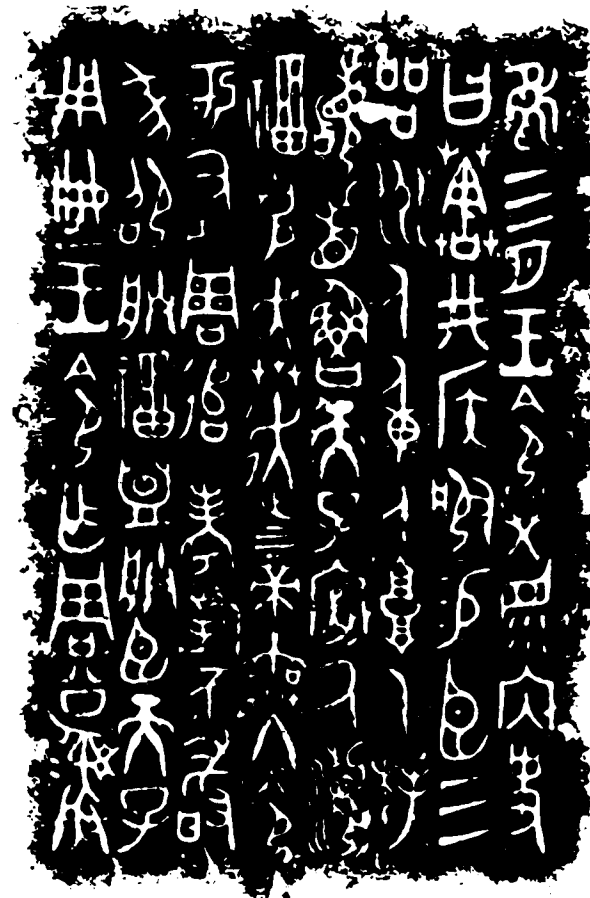 隹三月王令榮眔內史
曰𦱤井侯服易臣三
品州人重人𩫖人拜
𩒨首魯天子𢓊厥瀕
福克奔走上下帝無冬令
于有周追考對不敢
㒸卲朕福盟朕臣天子
用典王令乍周公彝